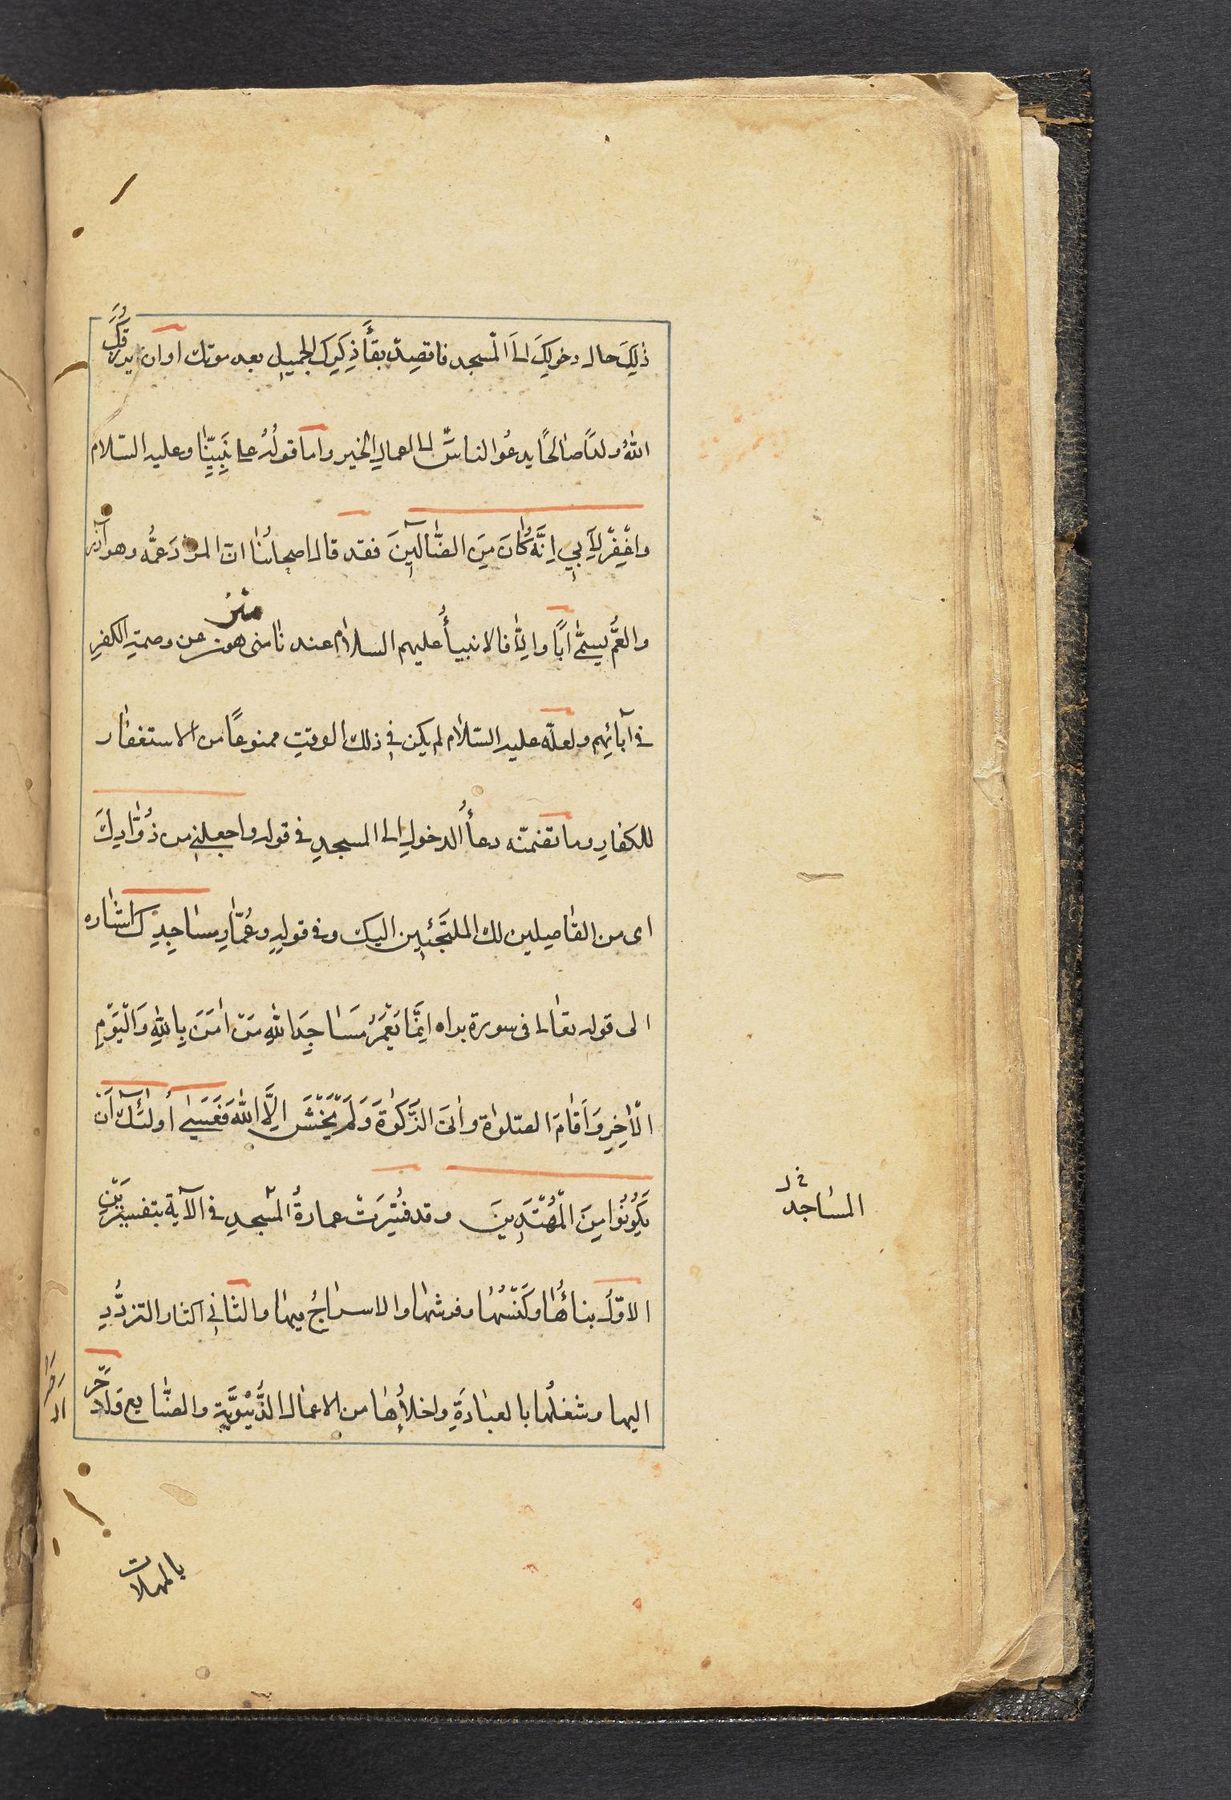 ذٰلِكَ حال دخولِكَ الَى الْمسجد فاقصِدْ بقآءَ ذِكرِكَ الجميلِ بعد موتك او ان يَرزُقَكَ
اللهُ ولدًا صالحًا يدعُو الناسَ الى اعمالِ الخير واما قولُهُ على نَبِيِّنٰا وعليه السّلام
واغْفِرْ لِاَبِي اِنَّهُ كٰانَ مِنَ الضّٰآلّٖينَ فقد قال اصحابُنٰا انّ المرٰادَ عمُّه وهو آزر
والعمُّ يسمّٰى ابًا والّا فالانبيآءُ عليهم السلام عندنٰا منزّهون عن وصمةِ الكفرِ
فى آبائِهم ولعلّه عليه السّلام لم يكن فى ذلك الوقتِ ممنوعًا من الاستغفار
للكفارِ وما تضمّنه دعآءُ الدخولِ الى المسجدِ فى قوله واجعلنى من زُوّٰارِكَ
اى من القٰاصدين لك الملتجَئين اليك وفى قولِهِ وعُمّٰارِ مسٰاجِدِكَ اشاره
الى قوله تعٰالى فى سورة براه اِنَّمٰا يَعْمُرُ مَسٰاجِدَ اللهِ مَنْ اٰمَنَ بِاللهِ وَالْيَوْمِ
الْاٰخِرِ وَاَقٰامَ الصّلوٰةَ واٰتَى الزَّكوٰةَ وَلَمْ يَخْشَ اِلَّا اللهَ فَعَسٰى اُولٰئِكَ اَنْ
يَكُونُوا مِنَ الْمُهْتَدِينَ وقد فُسِّرَتْ عمارةُ الْمَسْجدِ فى الآية بتفسيرَيْنِ
الاوّلُ بناؤُهٰا وكَنْسُهٰا وفرشهٰا والاسراجُ فيهٰا والثّانى اكثار التردُّدِ
اليها وشغلُها بالعبٰادَةِ واخلاؤُهٰا من الاعمٰال الدُّنْيَوِيَّةِ والصّنٰايع
فى
المسٰاجد
بالمهلات